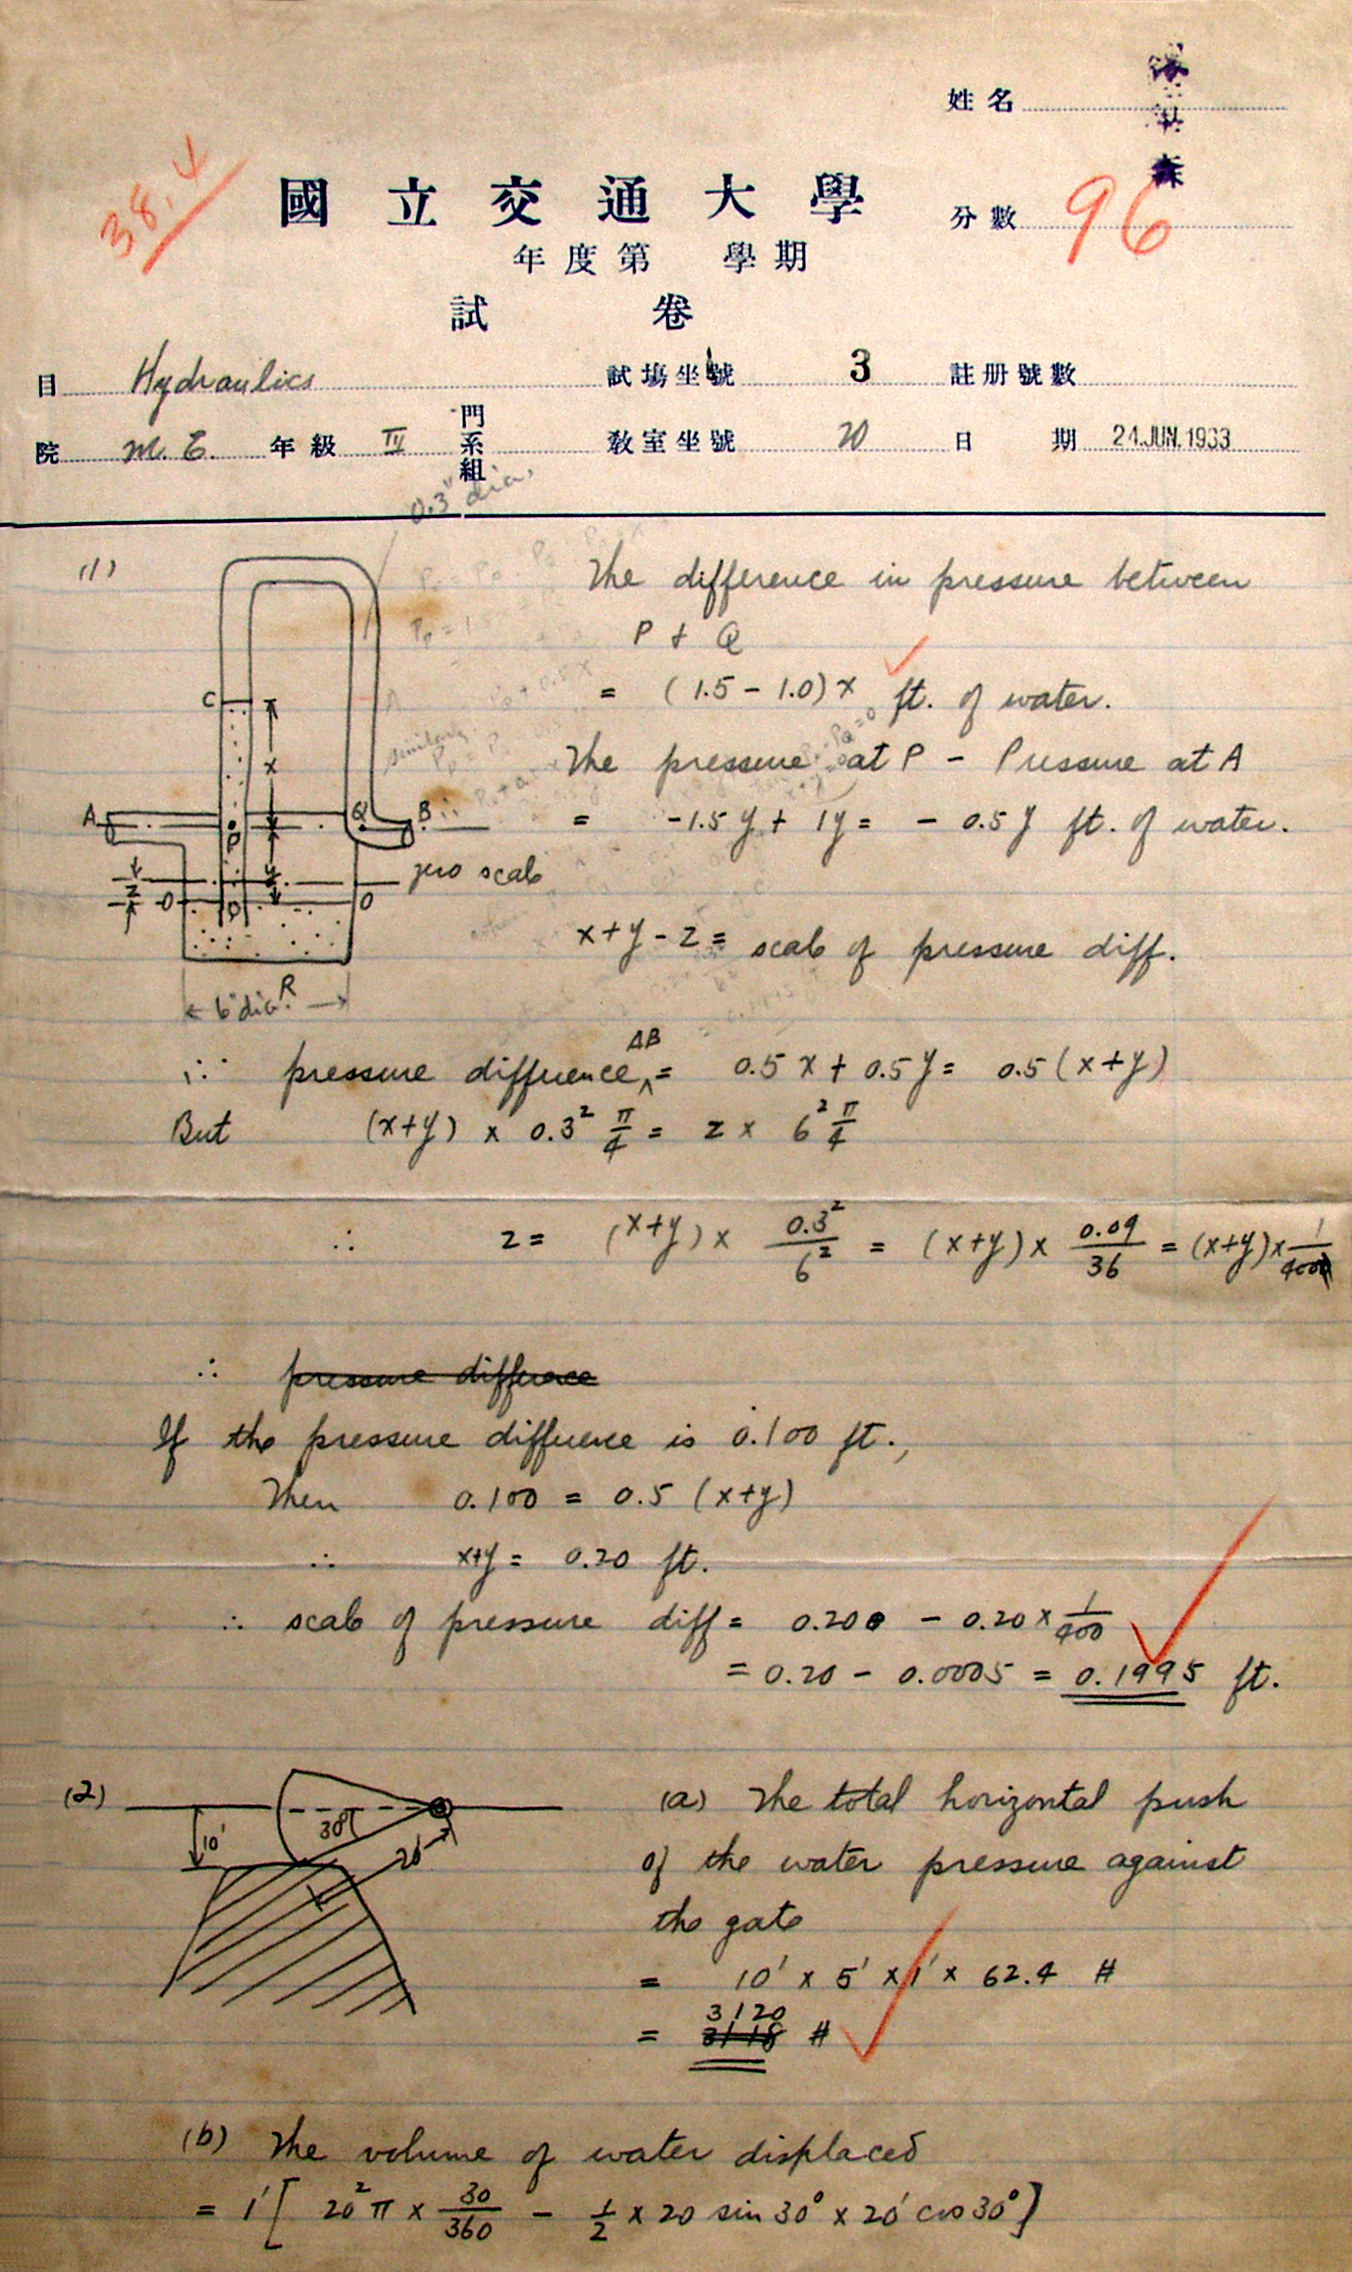 姓名
38.4
國立交通大學
分數 96
年度第 學期
試卷
目 Hydraulics 試場坐號 3 註册號數
院 M.E. 年級 IV 門系組 教室坐號 20 日期 24.JUN.1933
0.3" dia.
(1)
The difference in pressure between
P + Q
= (1.5 - 1.0) x ft. of water.
C
x
The pressure at P - Pressure at A
A P Q B
= -1.5 y + 1y = - 0.5 y ft. of water.
y zero scale
z O P O
x + y - z = scale of pressure diff.
6" dia. R
∴ pressure difference AB = 0.5 x + 0.5 y = 0.5 (x+y)
But (x+y) x 0.3² π/4 = z x 6² π/4
∴ z = (x+y) x 0.3²/6² = (x+y) x 0.09/36 = (x+y) x 1/400
∴ pressure difference
If the pressure difference is 0.100 ft.,
Then 0.100 = 0.5 (x+y)
∴ x+y = 0.20 ft.
∴ scale of pressure diff = 0.200 - 0.20 x 1/400
= 0.20 - 0.0005 = 0.1995 ft.
(2)
10' 30° 20'
(a) The total horizontal push
of the water pressure against
the gate
= 10' x 5' x 1' x 62.4 #
= 3120 #
(b) The volume of water displaced
= 1' [ 20² π x 30/360 - 1/2 x 20 sin 30° x 20' cos 30° ]